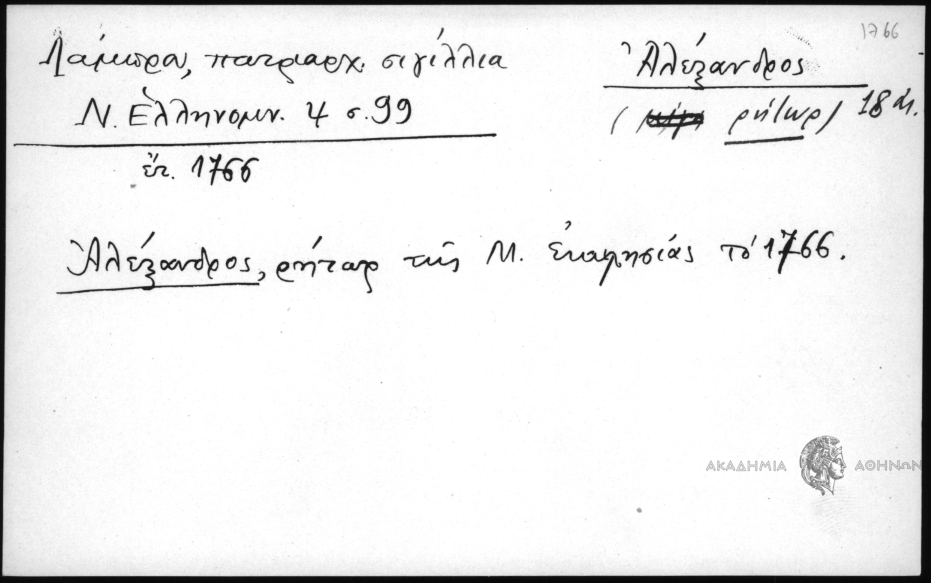 1766
Λάμπρου, πατριαρχ. σιγίλλια
Ν. Ἑλληνομν. 4 σ. 99
ἔτ. 1766
Ἀλέξανδρος
( ῥήτωρ) 18 αἰ.
Ἀλέξανδρος, ρήτωρ τῆς Μ. ἐκκλησίας τὸ 1766.
ΑΚΑΔΗΜΙΑ ΑΘΗΝΩΝ